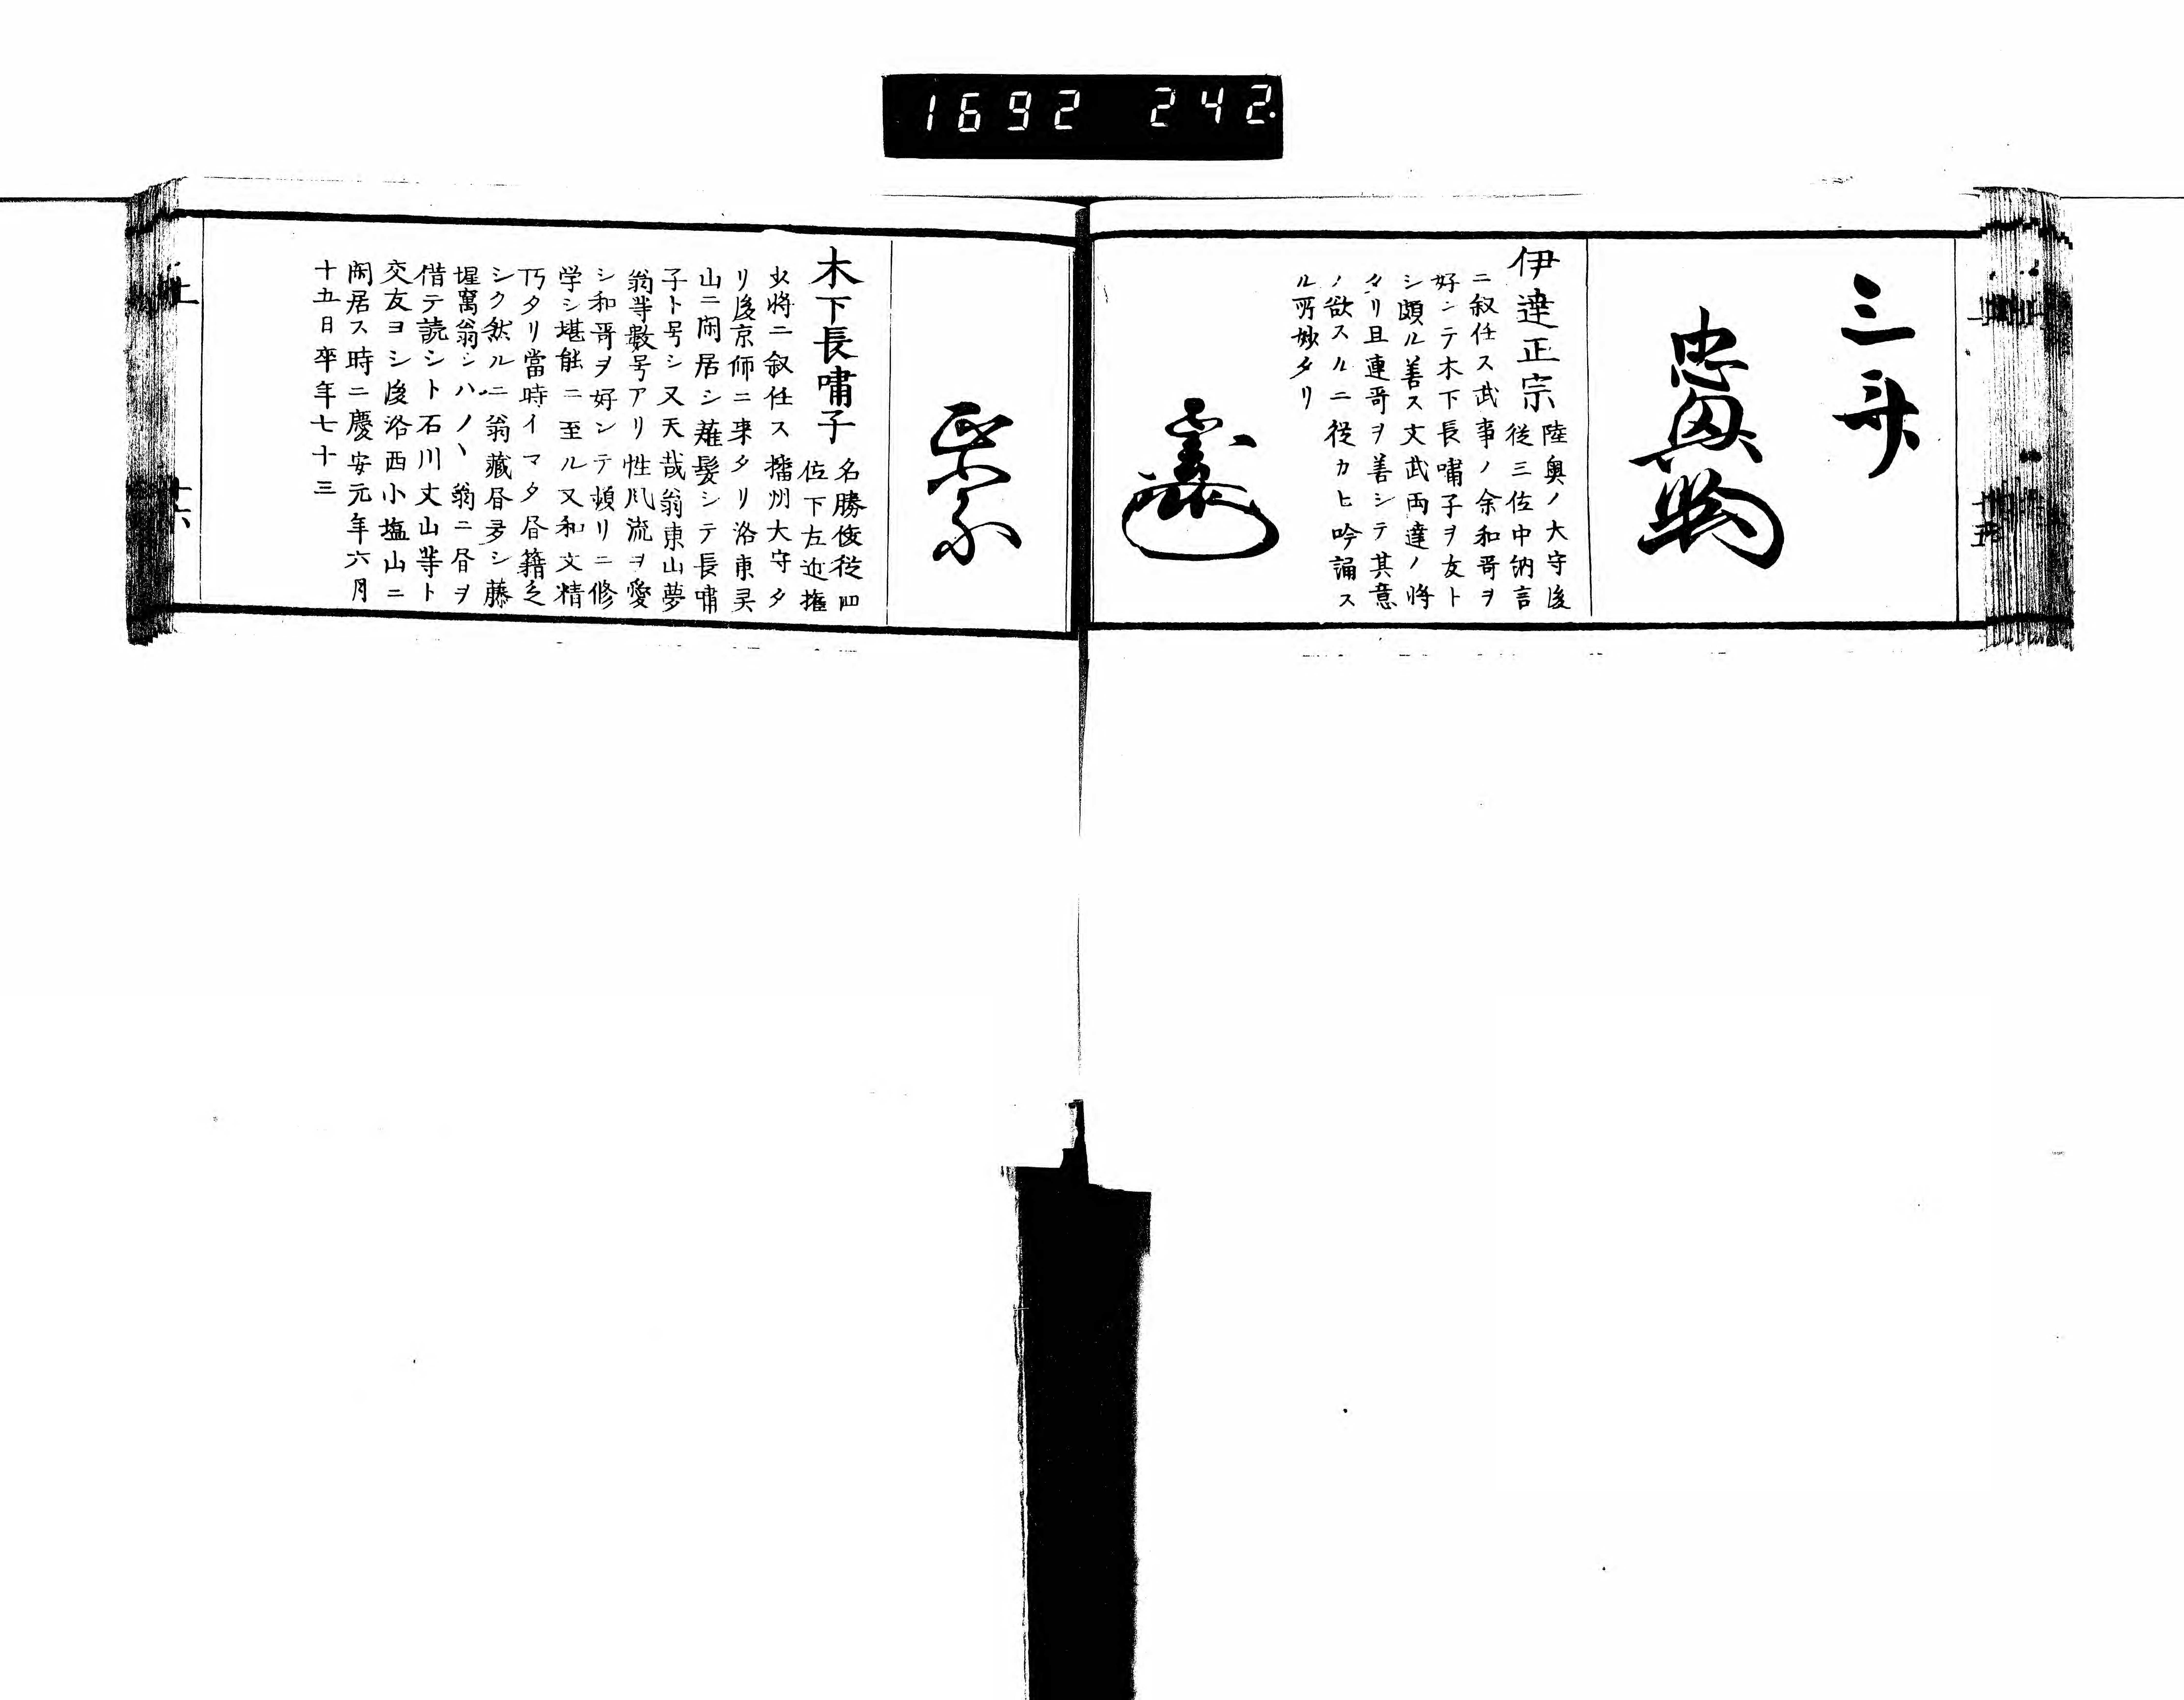 1692 242.
三斎
忠興
伊達正宗
陸奥ノ大守後
従三位中納言
ニ叙任ス武事ノ余和哥ヲ
好ンテ木下長嘯子ヲ友ト
シ頗ル善ス文武両達ノ将
タリ且連哥ヲ善シテ其意
ノ欲スルニ従カヒ吟誦ス
ル所妙タリ
政宗
木下長嘯子
名勝俊従四
位下左近権
少将ニ叙任ス播州大守タ
リ後京師ニ来タリ洛東㚑
山ニ閑居シ薙髪シテ長嘯
子ト号シ又天哉翁東山夢
翁等数号アリ性風流ヲ愛
シ和哥ヲ好ンテ頻リニ修
学シ堪能ニ至ル又和文精
巧タリ當時イマタ昼籍乏
シク然ルニ翁藏昼多シ藤
惺窩翁シハノヽ翁ニ昼ヲ
借テ読シト石川丈山等ト
交友ヨシ後洛西小塩山ニ
閑居ス時ニ慶安元年六月
十五日卒年七十三
上
十六